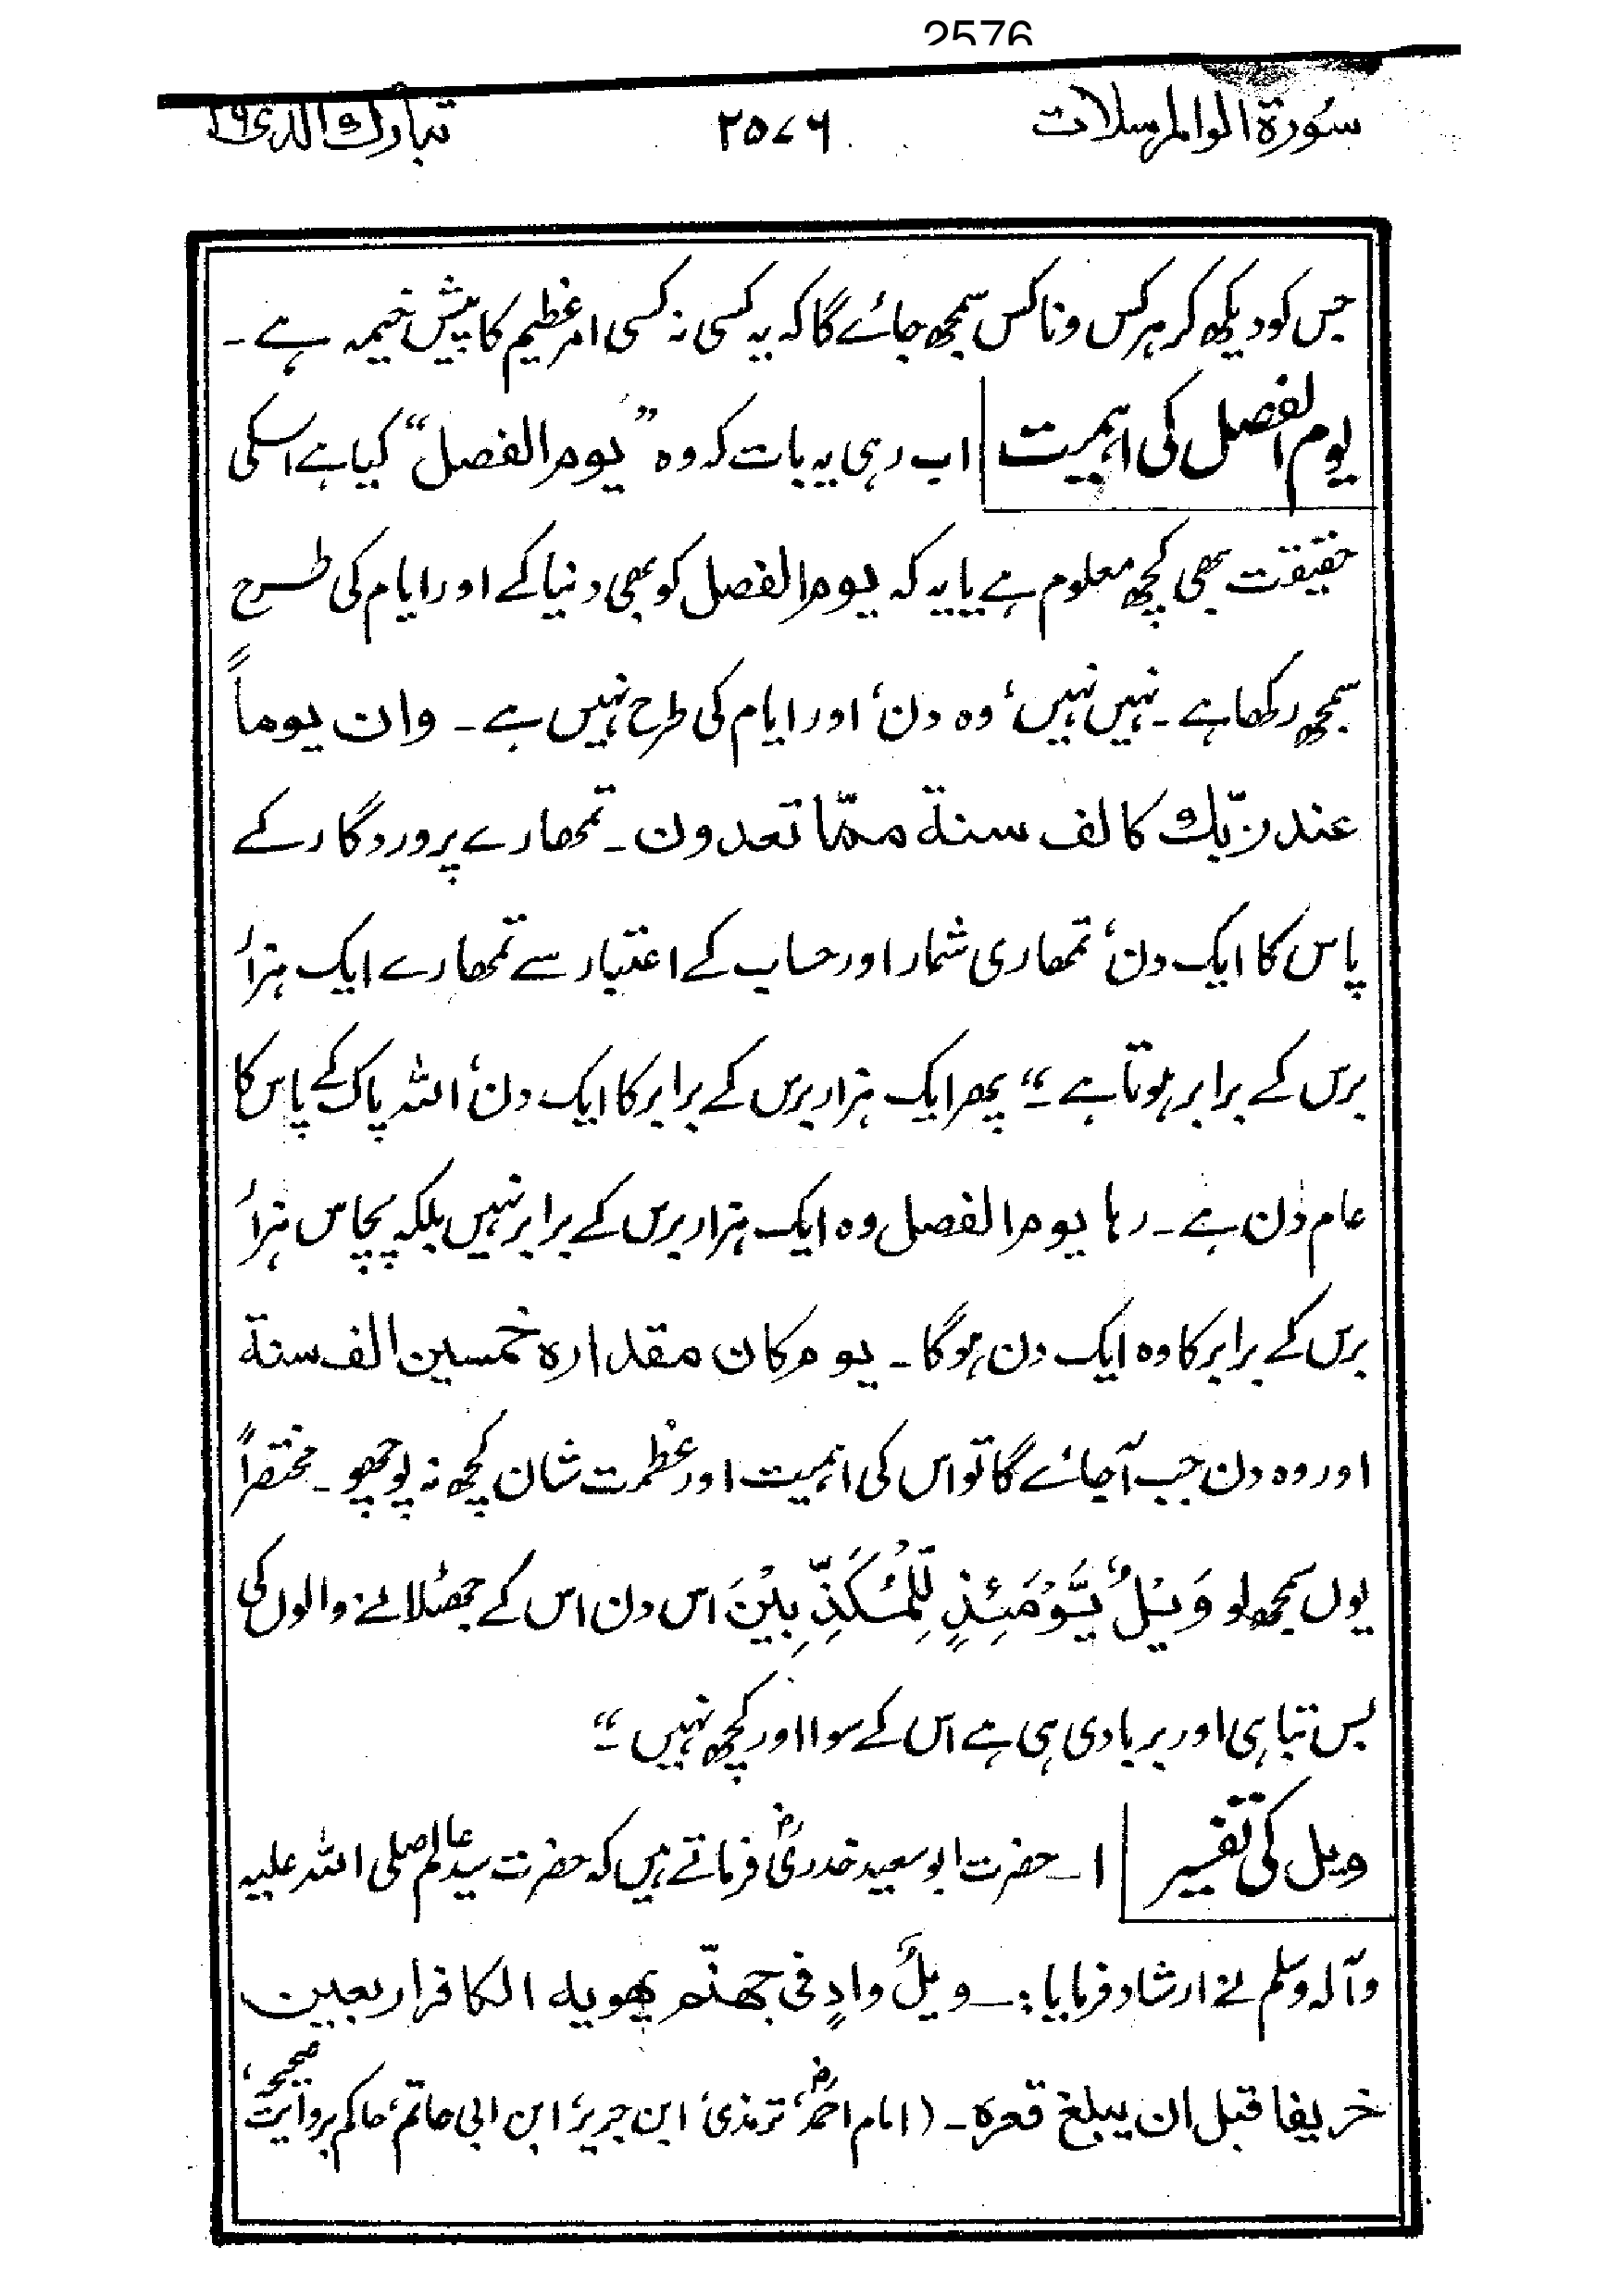 2576
سُورۃ الوالمرسلات ۲۵۷۶ تبارك الذی ۲۹
جس کو دیکھ کر ہر کس و ناکس سمجھ جائے گا کہ یہ کسی نہ کسی امر عظیم کا پیش خیمہ ہے۔
یوم الفصل کی اہمیت اب رہی یہ بات کہ وہ ”یوم الفصل“ کیا ہے اسکی
حقیقت بھی کچھ معلوم ہے یا یہ کہ یوم الفصل کو بھی دنیا کے اور ایام کی طرح
سمجھ رکھا ہے۔ نہیں نہیں، وہ دن، اور ایام کی طرح نہیں ہے۔ وان یوماً
عند ربّك کالف سنة ممّا تعدون۔ تمھارے پروردگار کے
پاس کا ایک دن، تمھاری شمار اور حساب کے اعتبار سے تمھارے ایک ہزار
برس کے برابر ہوتا ہے۔“ پھر ایک ہزار برس کے برابر کا ایک دن، اللہ پاک کے پاس کا
عام دن ہے۔ رہا یوم الفصل وہ ایک ہزار برس کے برابر نہیں بلکہ پچاس ہزار
برس کے برابر کا وہ ایک دن ہوگا۔ یوم کان مقدارہ خمسین الف سنة
اور وہ دن جب آجائے گا تو اس کی اہمیت اور عظمت شان کچھ نہ پوچھو۔ مختصراً
یوں سمجھ لو وَیْلٌ یَّوْمَئِذٍ لِّلْمُکَذِّبِیْنَ اس دن اس کے جھٹلانے والوں کی
بس تباہی اور بربادی ہی ہے اس کے سوا اور کچھ نہیں۔“
ویل کی تفسیر ۱۔ حضرت ابو سعید خدریؓ فرماتے ہیں کہ حضرت سید عالم صلی اللہ علیہ
وآلہ وسلم نے ارشاد فرمایا:۔ ویلٌ وادٍ فی جهنّم یھویہ الکافر اربعین
خریفا قبل ان یبلغ قعرہ۔ (امام احمدؓ، ترمذی، ابن جریر، ابن ابی حاتم، حاکم بروایت صحیح،